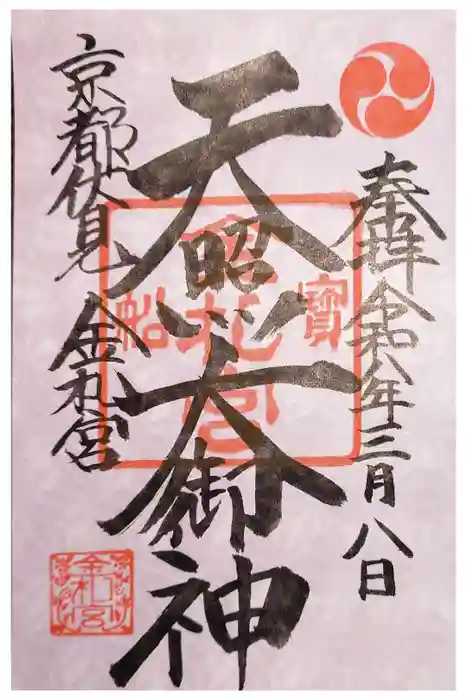 奉拝 令和八年三月八日
天照大御神
京都伏見 金札宮
金札宮
寶
金札宮